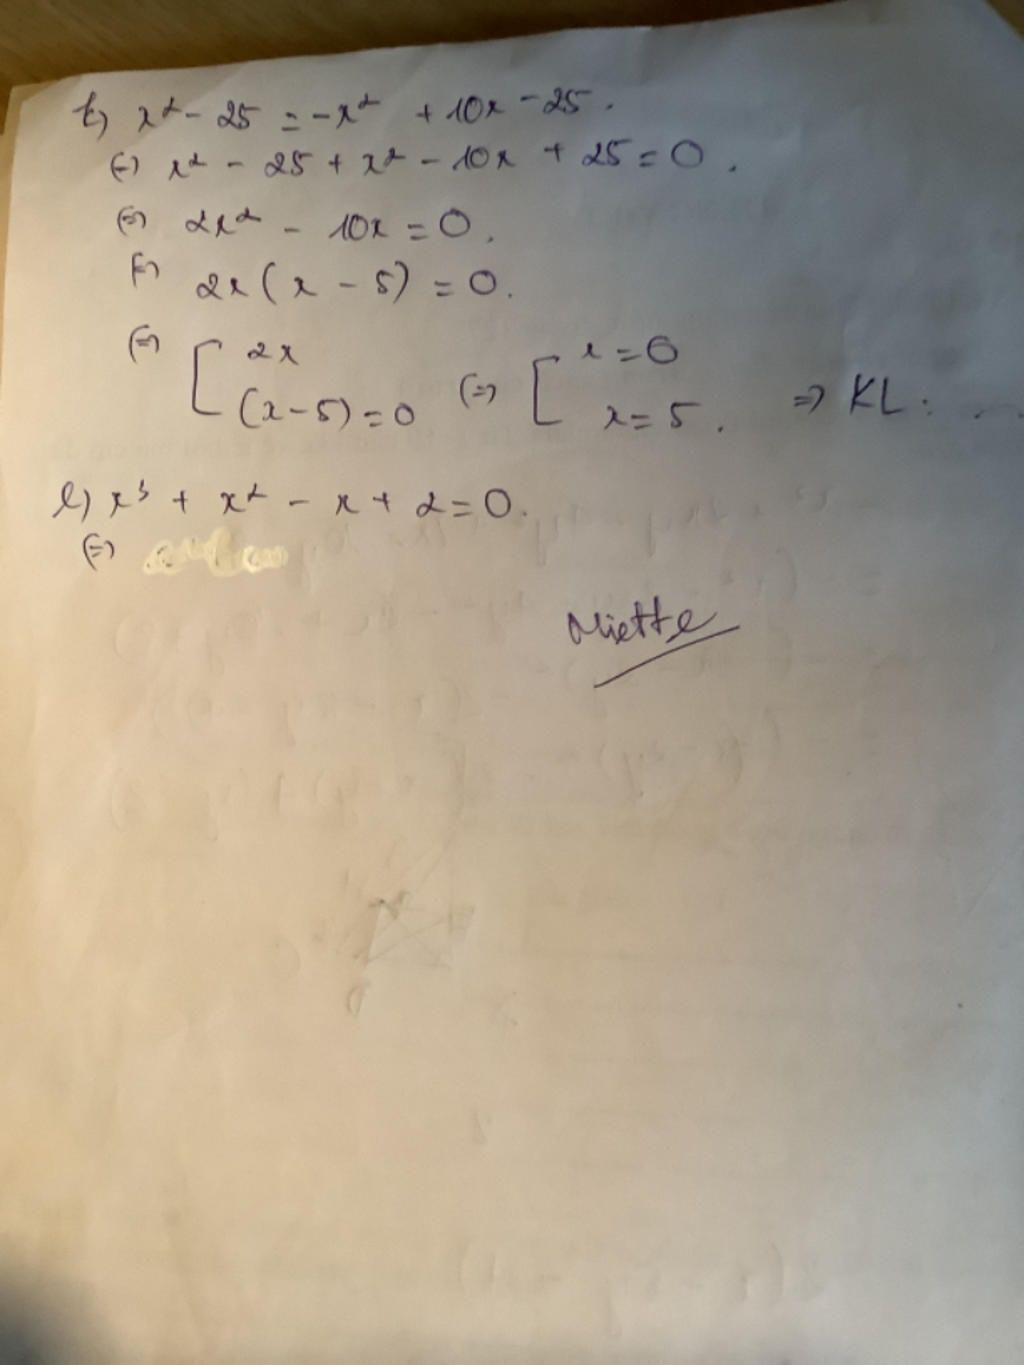 k) x² - 25 = -x² + 10x - 25.
(=) x² - 25 + x² - 10x + 25 = 0.
(=) 2x² - 10x = 0.
(=) 2x(x - 5) = 0.
(=) [ 2x (x-5) = 0 (=) [ x = 0 x = 5. => KL: ...
l) x³ + x² - x + 2 = 0.
(=)
Miette